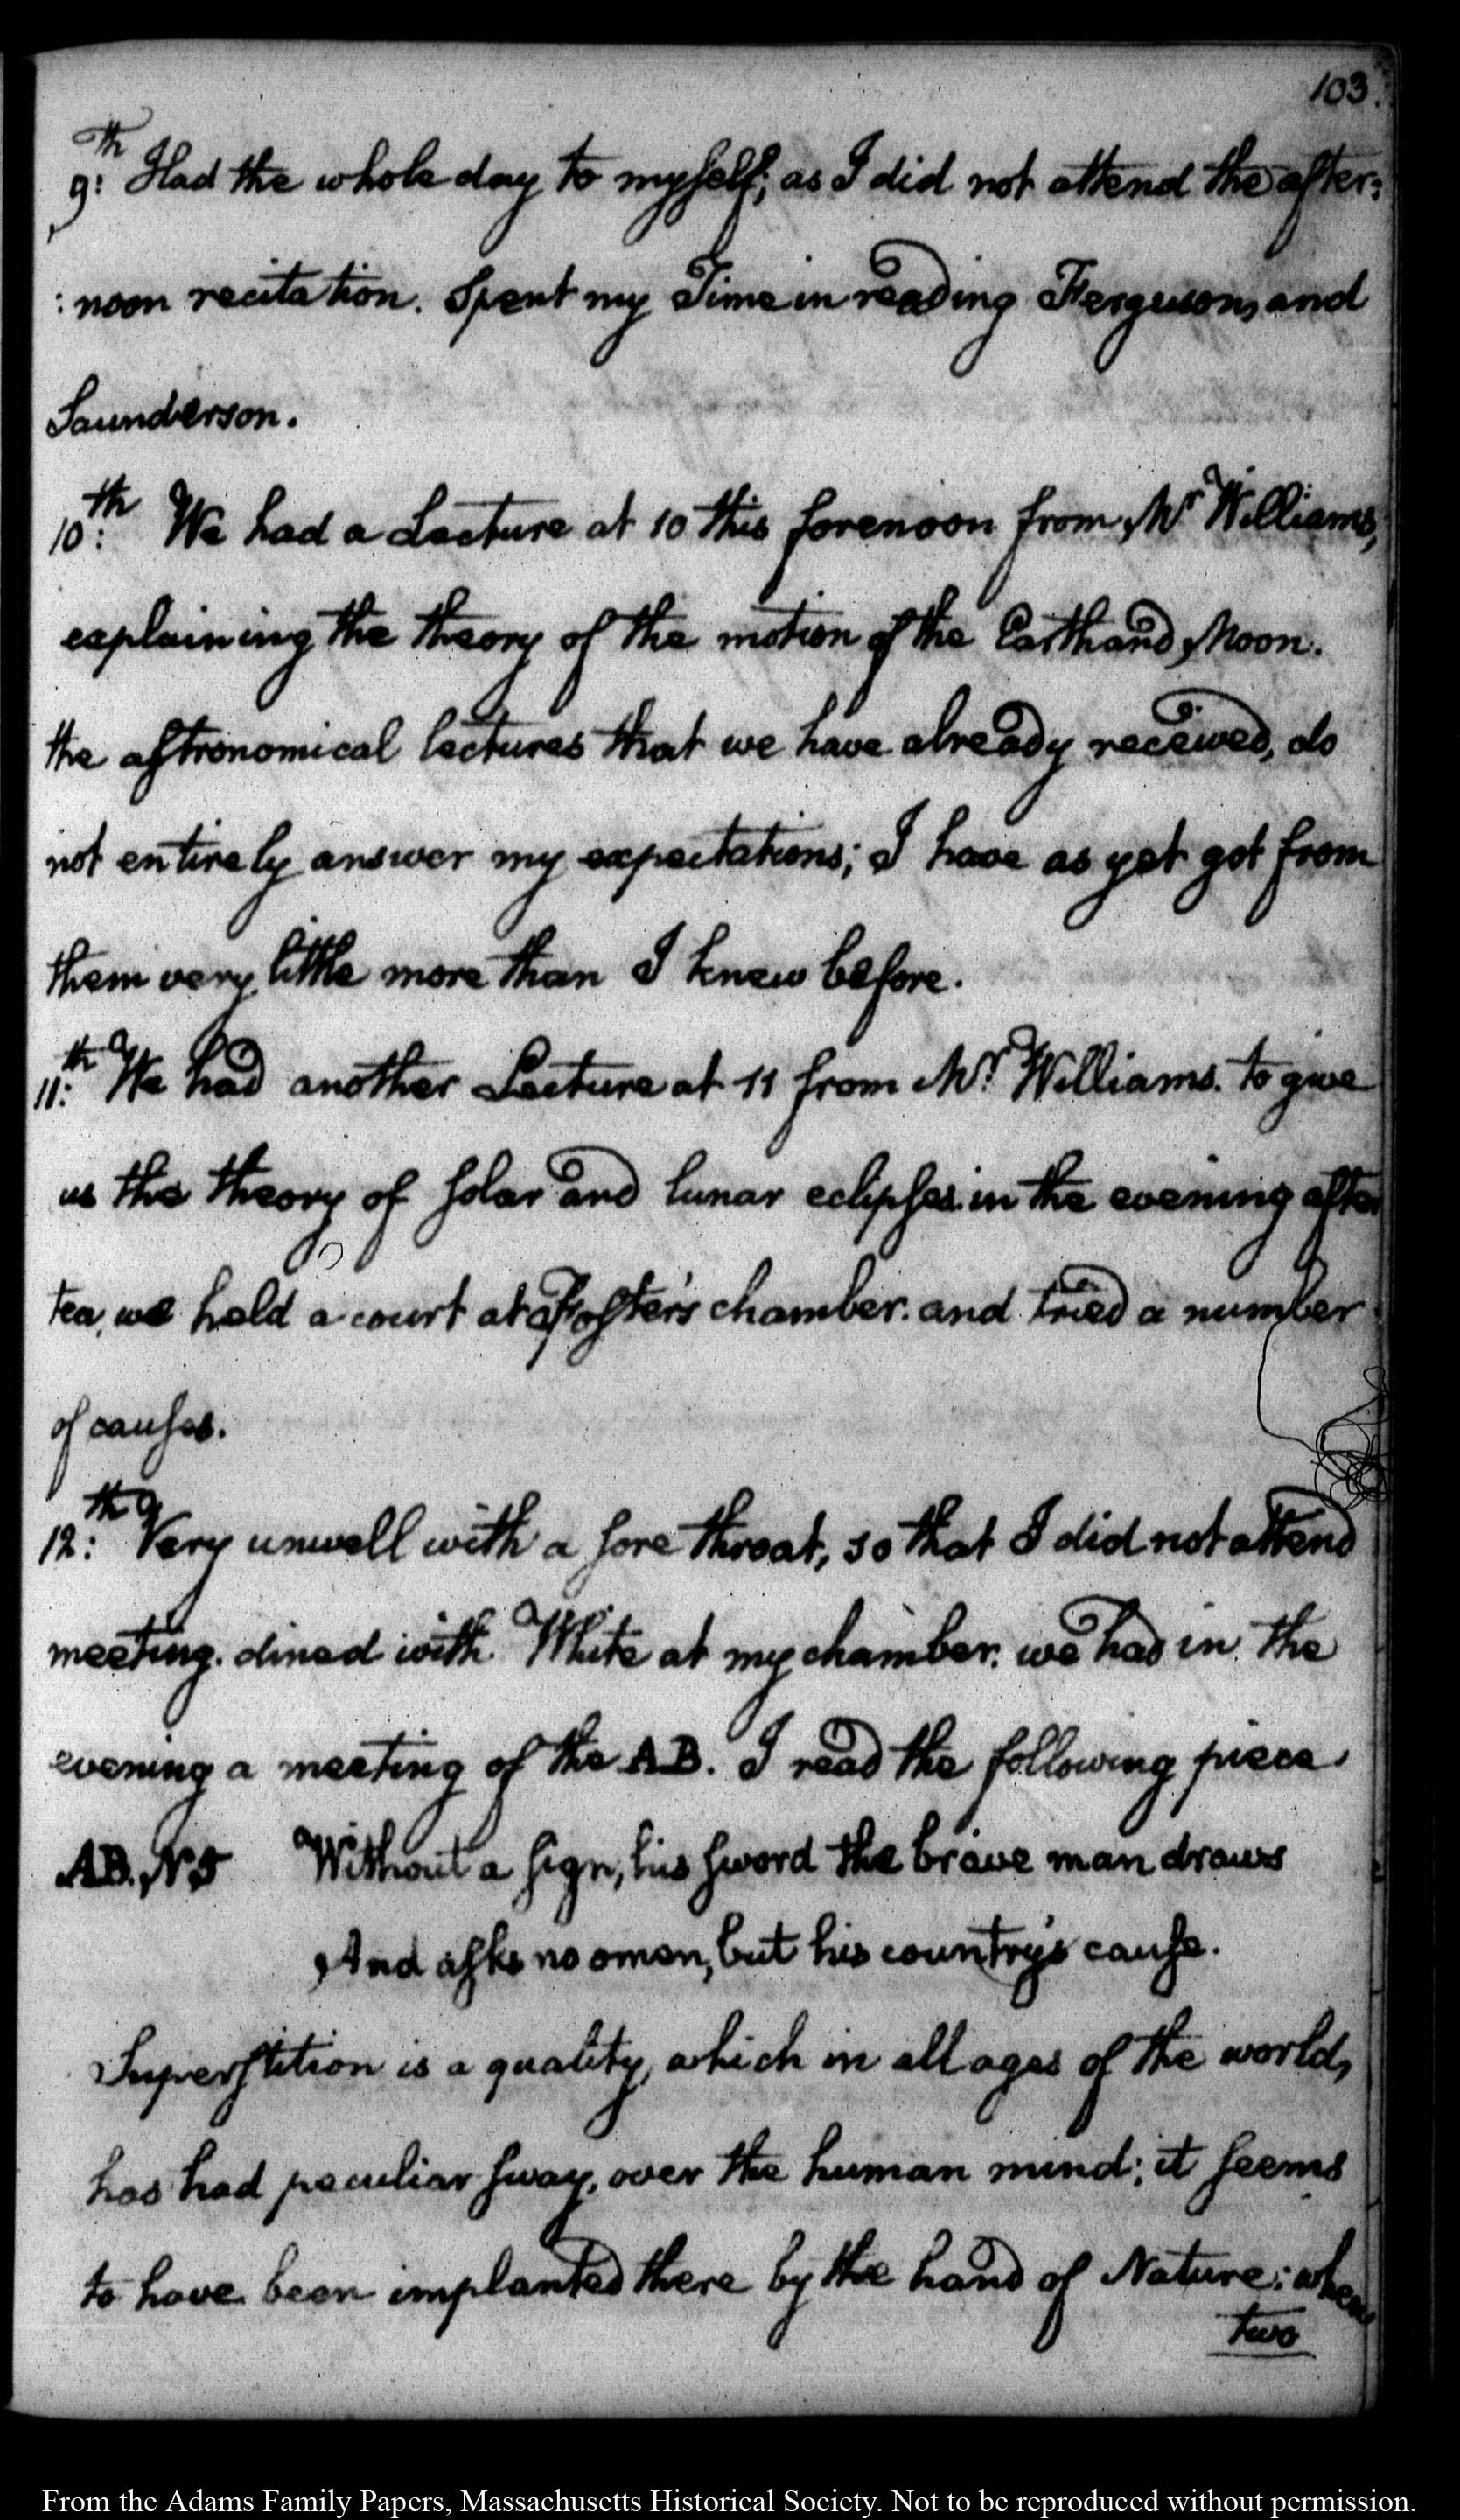 103.
9:th Had the whole day to myself; as I did not attend the after:
:noon recitation. Spent my Time in reading Ferguson, and
Saunderson.
10:th We had a Lecture at 10 this forenoon from Mr Williams,
explaining the theory of the motion of the Earth and Moon.
the aſtronomical lectures that we have already received, do
not entirely answer my expectations; I have as yet got from
them very little more than I knew before.
11:th We had another Lecture at 11 from Mr Williams. to give
us the theory of ſolar and lunar eclipſes. in the evening after
tea, we held a court at Foſter's chamber. and tried a number
of cauſes.
12:th Very unwell with a ſore throat, so that I did not attend
meeting. dined with White at my chamber. we had in the
evening a meeting of the A B. I read the following piece.
A B. N 5 Without a ſign, his ſword the brave man draws
And aſks no omen, but his country's cauſe.
Superſtition is a quality, which in all ages of the world,
has had peculiar ſway, over the human mind; it ſeems
to have been implanted there by the hand of Nature; when
two
From the Adams Family Papers, Massachusetts Historical Society. Not to be reproduced without permission.